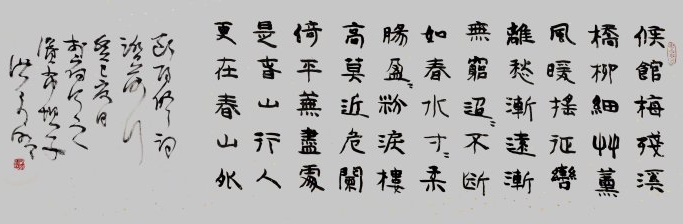 候館梅殘溪
橋柳細艸薰
風暖搖征轡
離愁漸遠漸
無窮迢〻不断
如春水寸〻柔
腸盈〻粉淚樓
高莫近危闌
倚平蕪盡處
是春山行人
更在春山外
歐陽修詞
踏莎行
癸巳夏日